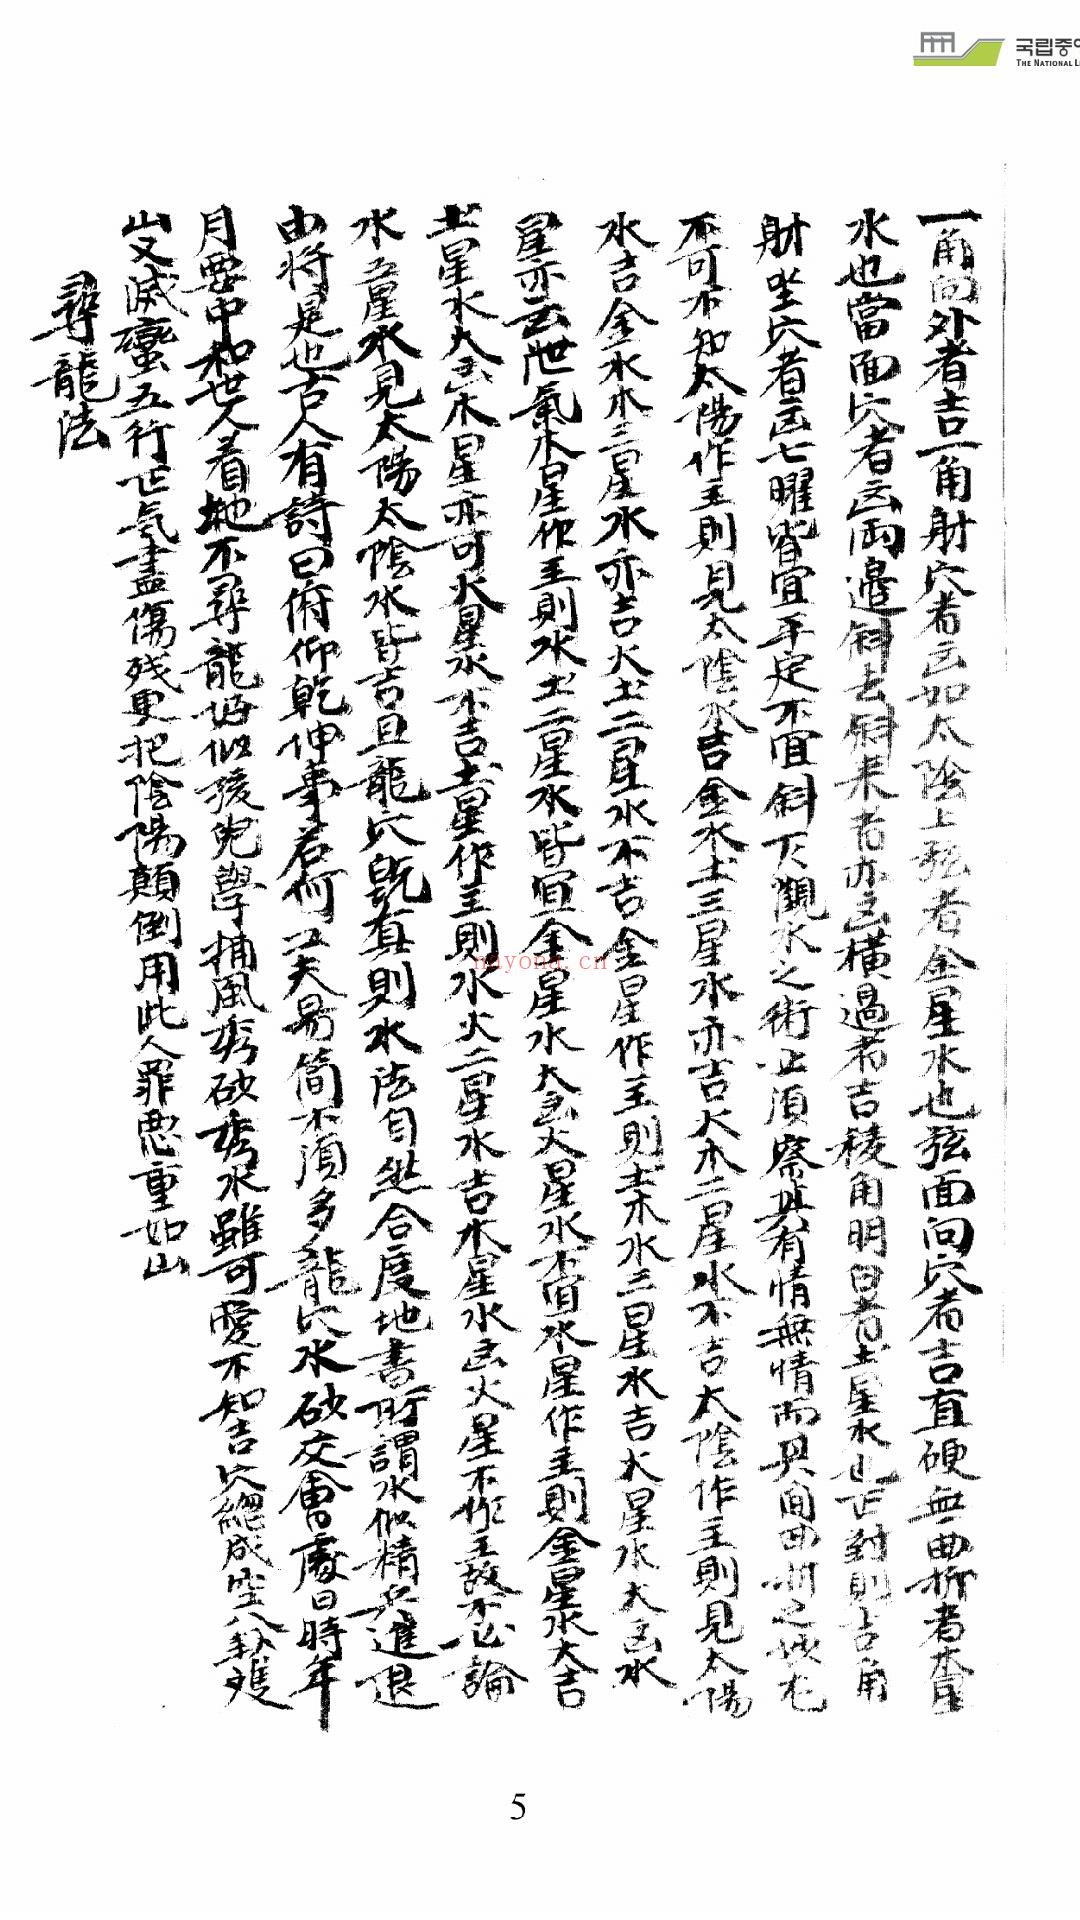 국립중
THE NATIONAL L
一角向外者吉一角射穴者凶如太陰上弦者金星水也弦面向穴者吉直硬無曲折者木星
水也當面穴者凶両邉斜去斜来者亦凶横過者吉稜角明白者土星水也正對則吉角
射坐穴者凶七曜皆宜平定不宜斜下觀水之術止須察其有情無情而其間曲折之妙尤
不可不知太陽作主則見太陰水吉金水土三星水亦吉火木二星水不吉太陰作主則見太陽
水吉金水木三星水亦吉火土二星水不吉金星作主則土木水三星水吉火星水大凶水
星亦云泄氣木星作主則水土二星水皆宜金星水大凶火星水不宜水星作主則金星水大吉
土星水大凶木星亦可火星水不吉土星作主則水火二星水吉木星水凶火星不作主故不必論
水五星水見太陽太陰水皆吉且龍穴既真則水法自然合度地書所謂水似精兵進退
由将是也古人有詩曰俯仰乾伸事若何工夫易簡不須多龍穴水砂交會處日時年
月要中和世人着地不尋龍好似孩兒學捕風秀砂秀水雖可愛不知吉穴總成空八卦雙
山又滅蠻五行正気盡傷残更把陰陽顛倒用此人罪悪重如山
尋龍法
nnyona.cn
5